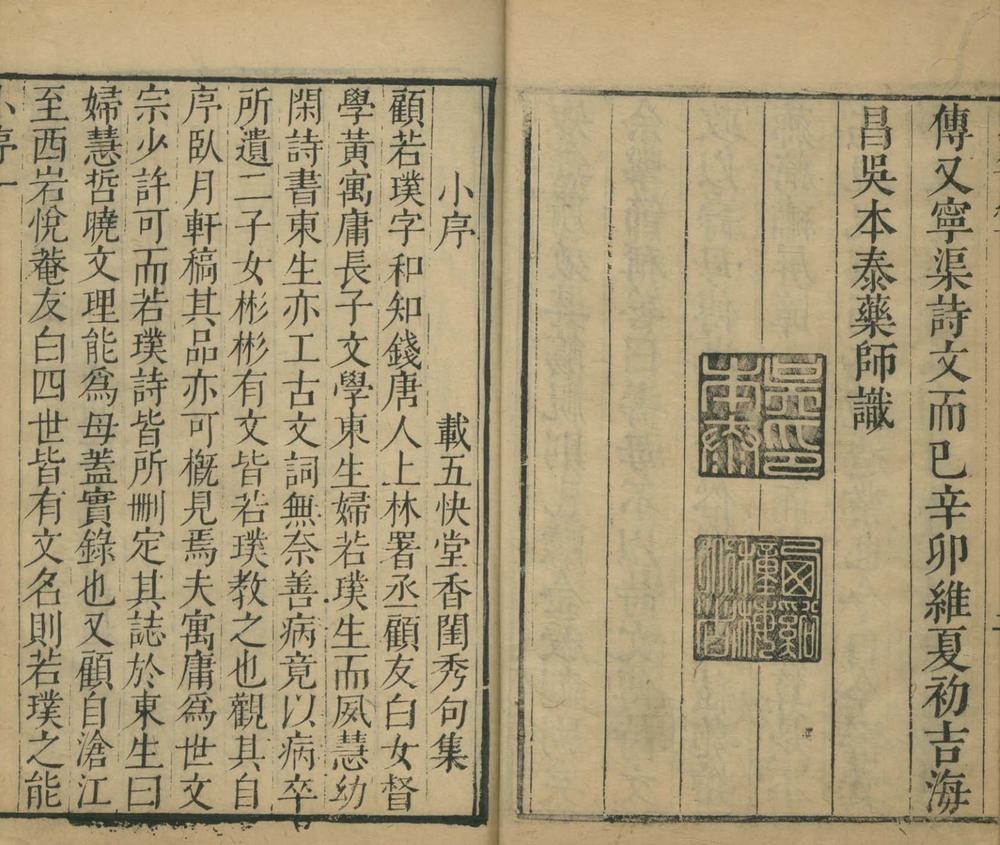 傳又寧渠詩文而已辛卯維夏初吉海
昌吳本泰藥師識
吳本泰印
小序
載五快堂香閨秀句集
顧若璞字和知錢唐人上林署丞顧友白女督
學黃寓庸長子文學東生婦若璞生而夙慧幼
閑詩書東生亦工古文詞無奈善病竟以病卒
所遺二子女彬彬有文皆若璞教之也觀其自
序臥月軒稿其品亦可概見焉夫寓庸為世文
宗少許可而若璞詩皆所刪定其誌於東生曰
婦慧哲曉文理能為母蓋實錄也又顧自滄江
至西岩悅菴友白四世皆有文名則若璞之能
小序一